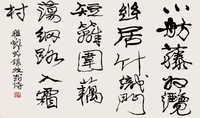 小舫藤為纜
幽居竹織門
短籬圍藕
蕩細路入霜
村